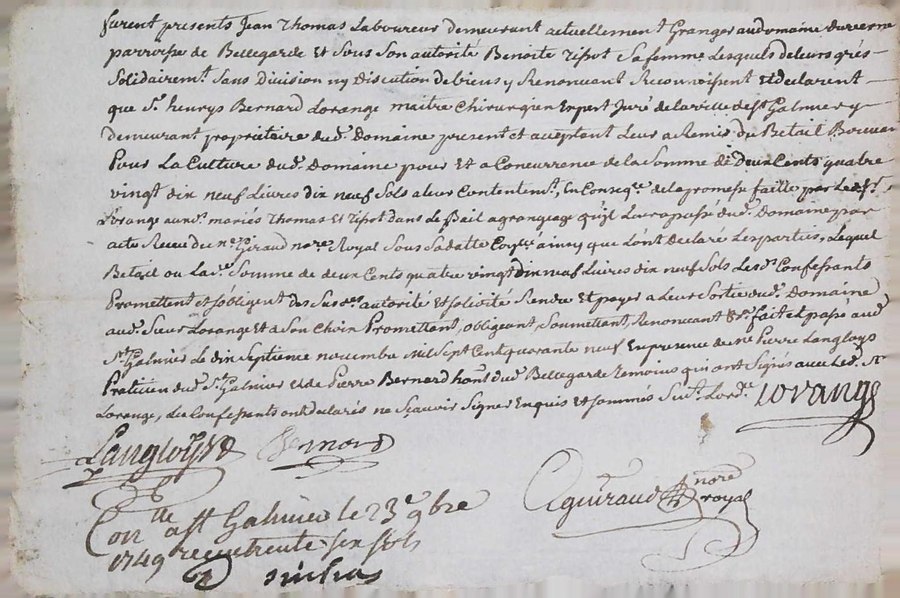 furent presents Jean Thomas Laboureur demeurant actuellement Granger au domaine
parroisse de Bellegarde Et Sous Son autorité Benoite Tipot Sa femme Lesquels de leurs grés
Solidairemt. Sans Division ny Discution de biens y Renonçant Reconnoissent Et declarent
que Sr. henrys Bernard Lorange maitre Chirurgien Expert Juré de la ville de St Galmier y
demeurant propriétaire dud. Domaine present et acceptant Leur a Remis du Betail
Pour La Culture dud. Domaine pour Et a Concurrance de la Somme de deux Cents quatre
vingt dix neuf Livres dix neuf Sols a leur Contentemt., En Conseqce. de la promesse faitte par Led. Sr.
Lorange auxd. mariés Thomas Et Tipot dans Le Bail a grangeage qu'il Leur a passé dud. Domaine par
acte Receu du me. Giraud nore. Royal Sous Sa datte ainsy que L'ont declaré Les parties, Lequel
Betail ou Lade. Somme de deux Cents quatre vingt dix neuf Livres dix neuf Sols Lesd. Confessants
Promettent et s'obligent des Susdes. autorité et solidité Rendre Et payer a Leur Sortie dud. Domaine
aud. Sieur Lorange Et a Son Choix Promettant, obligeant, Soumettant, Renonçant &c. fait et passé aud.
St. Galmier Le dix Septieme novembre mil Sept Cent quarante neuf En presence de me Pierre Langloys
Praticien dud. St. Galmier et de Pierre Bernard dud. Bellegarde Temoins qui ont Signés avec Led. Sr.
Lorange, Les Confessants ont declarés ne Sçavoir Signer Enquis Et sommés Lorange
Langloys Bernard
Aguiraud nore royal
Conlle a St Galmier le 23e 9bre
1749 receu trente six sols